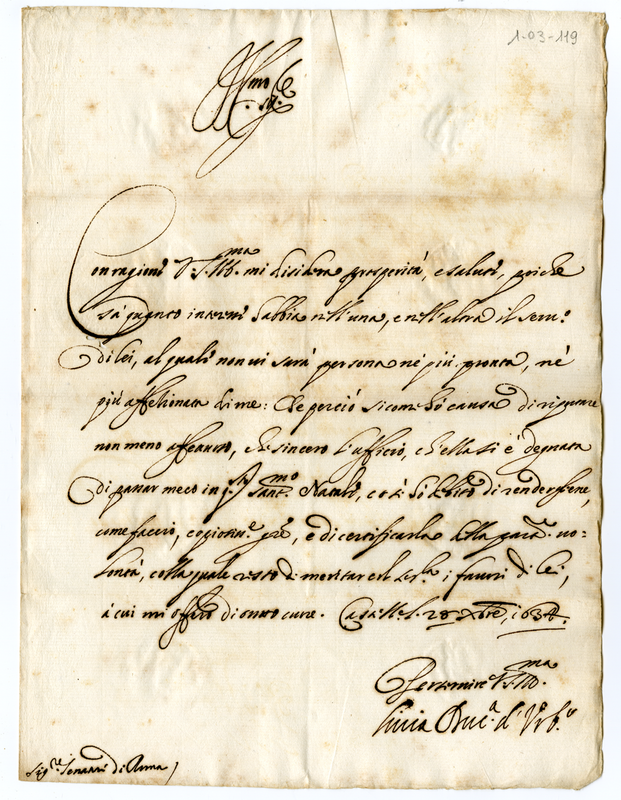 1-03-119
Ill.mo Sig.re
Con ragione V. S. Ill.ma mi disidera prosperità, e salute, poiche
sà quanto interesse habbia nell'una, e nell'altra il seru.o
di lei, al quale non ui sarà persona nè più pronta, nè
più affettionata di me: Che perciò sicome hò causa di riputare
non meno affettuoso, che sincero l'ufficio, ch'ella si è degnata
di passar meco in q.sto sant.mo Natale, così hò debito di rendergliene,
come faccio, copiosis.e gr.e, e di certificarla della part.re uo=
lontà, colla quale resto di meritar coll' i fauori di lei,
à cui mi offero di tutto cuore. 28 Xbre, 1634.
Per seruire V. S. Ill.ma
Liuia Duc.a d'Vrb.o
Sig.re Senatore di Roma